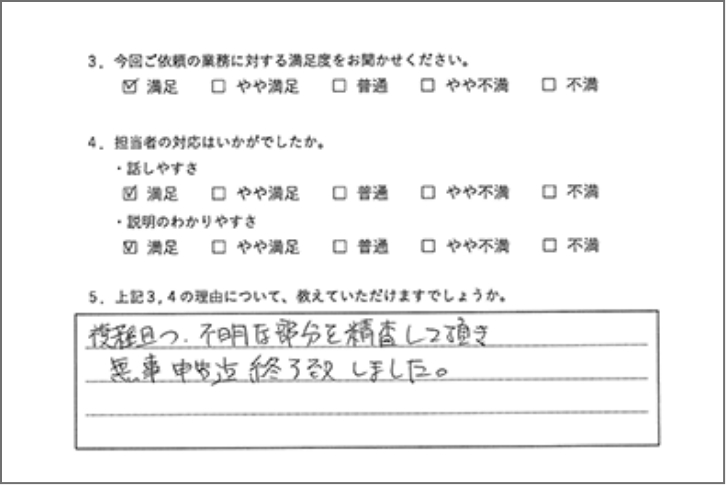 3．今回ご依頼の業務に対する満足度をお聞かせください。
☑ 満足 □ やや満足 □ 普通 □ やや不満 □ 不満
4．担当者の対応はいかがでしたか。
・話しやすさ
☑ 満足 □ やや満足 □ 普通 □ やや不満 □ 不満
・説明のわかりやすさ
☑ 満足 □ やや満足 □ 普通 □ やや不満 □ 不満
5．上記3，4の理由について、教えていただけますでしょうか。
複雑且つ、不明な部分を精査して頂き
無事申告迄終了致しました。